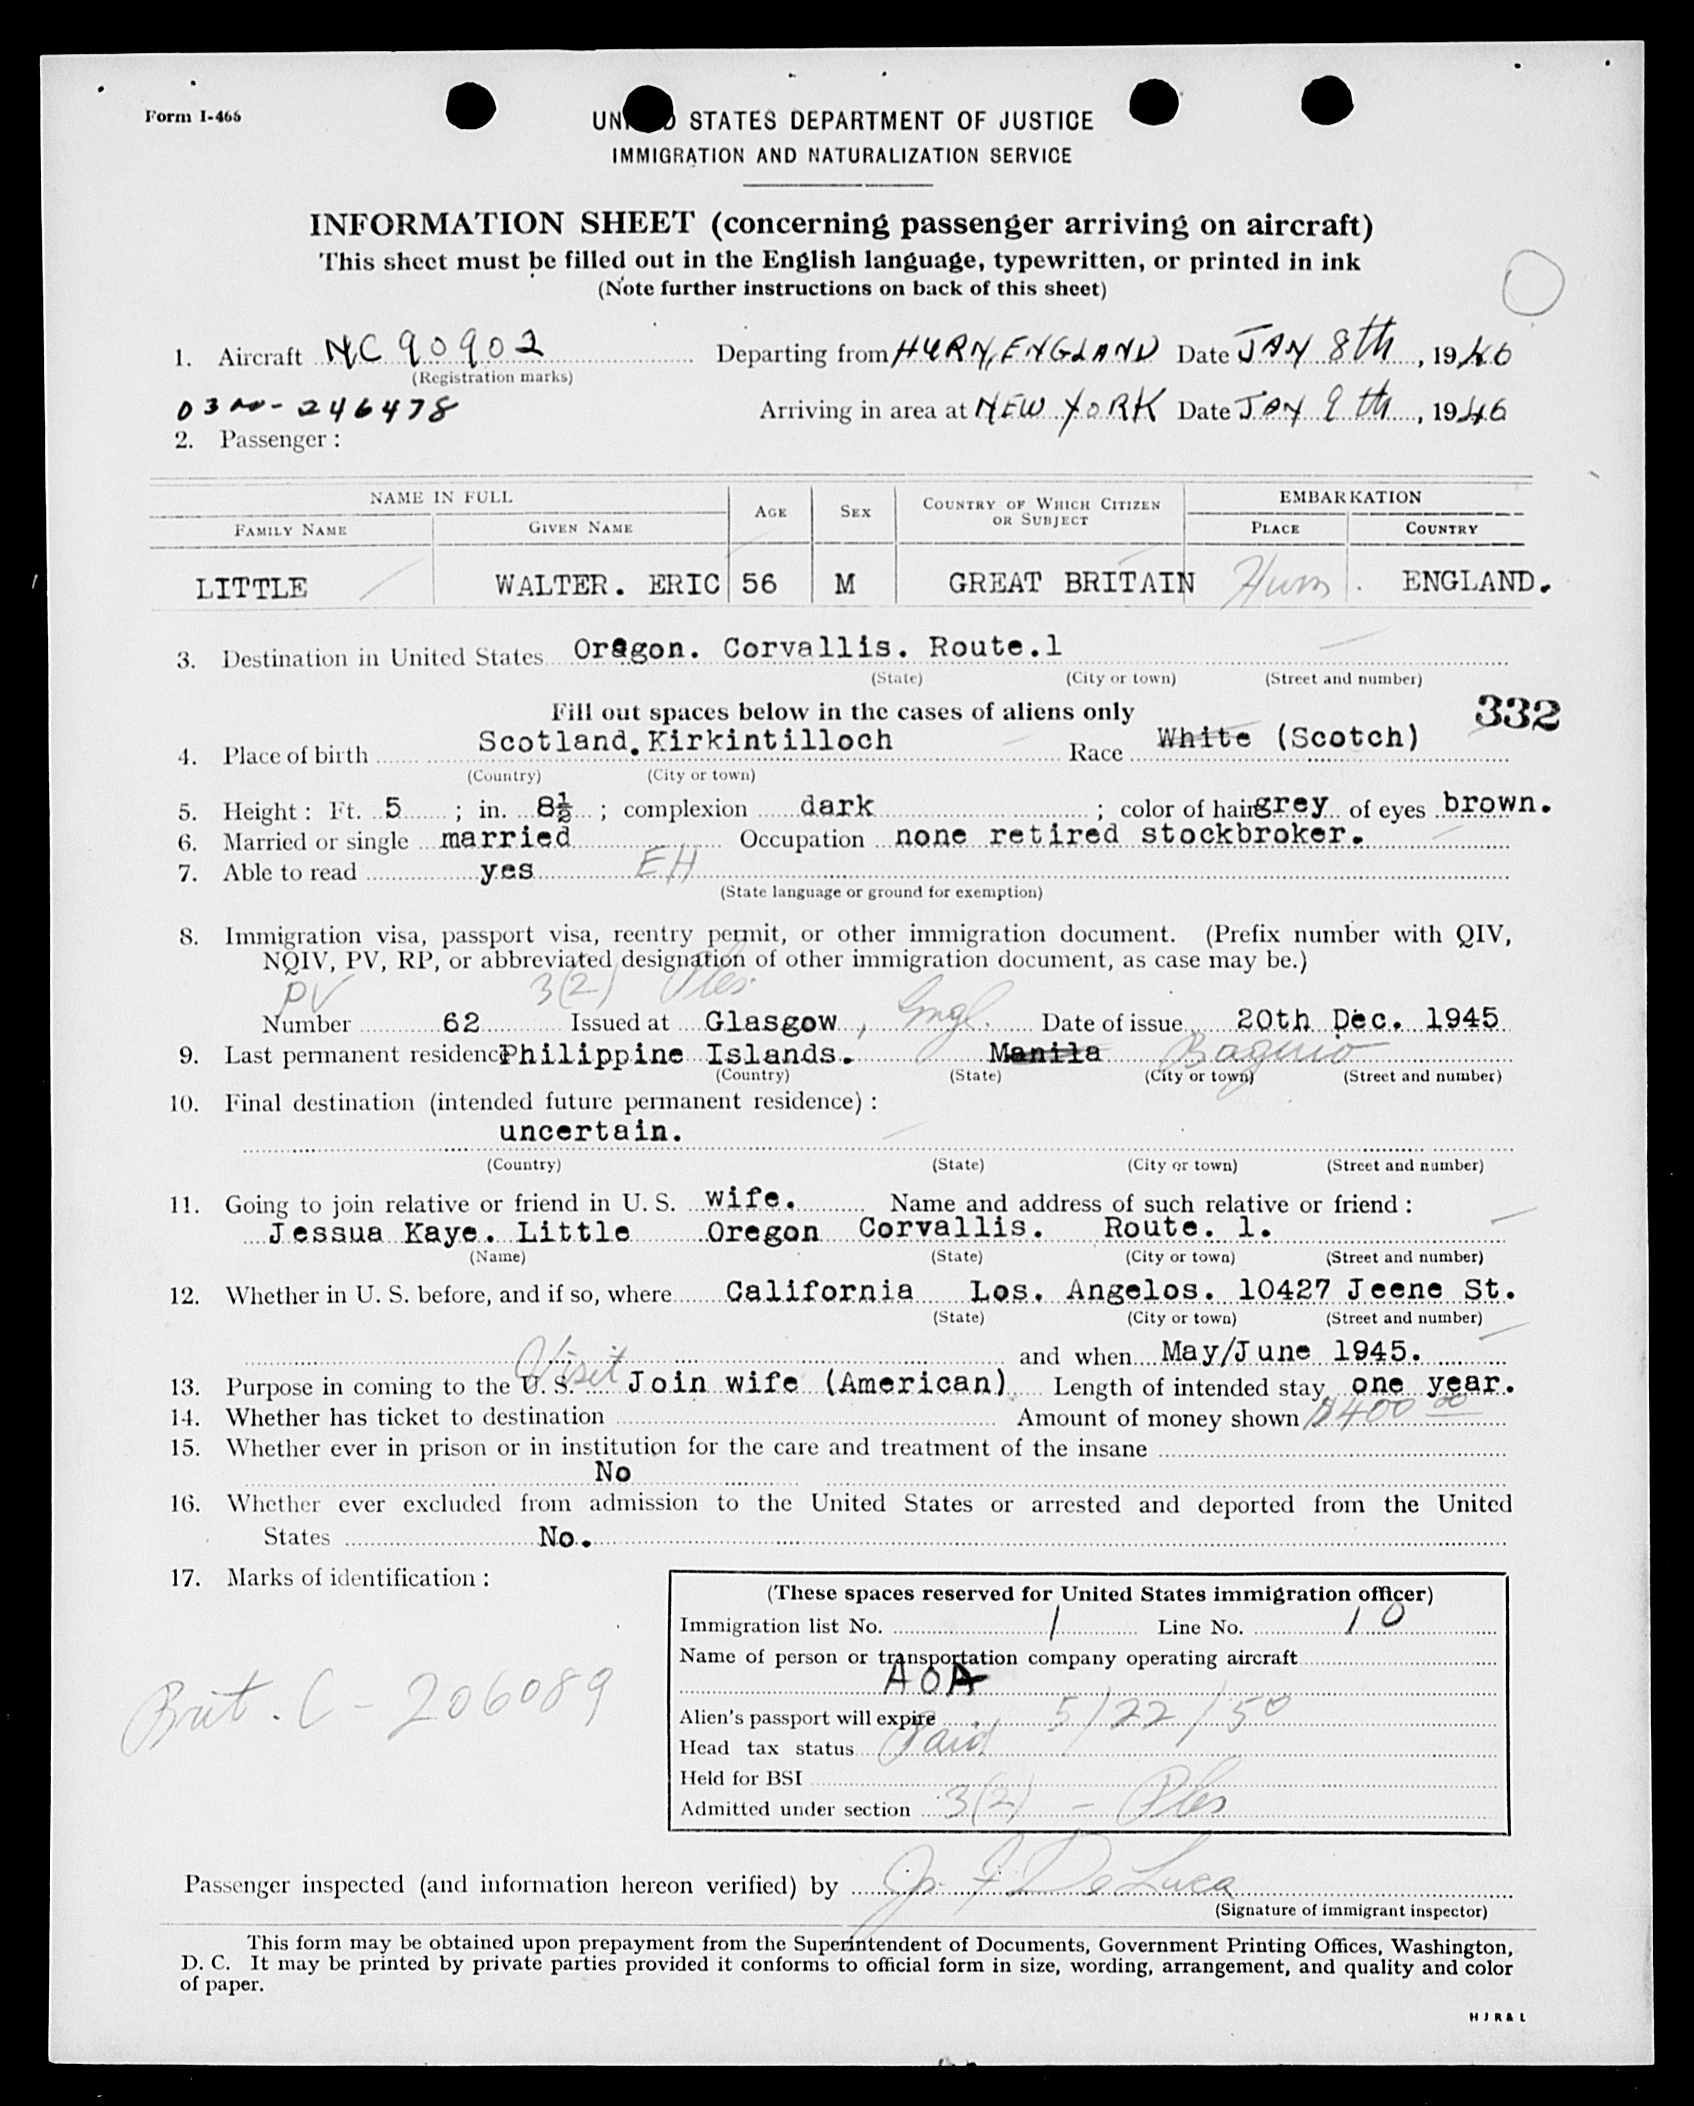 Form I-466
UNITED STATES DEPARTMENT OF JUSTICE
IMMIGRATION AND NATURALIZATION SERVICE
INFORMATION SHEET (concerning passenger arriving on aircraft)
This sheet must be filled out in the English language, typewritten, or printed in ink
(Note further instructions on back of this sheet)
1. Aircraft NC 90902 Departing from HURN, ENGLAND Date JAN 8th, 1946
(Registration marks)
246478 Arriving in area at NEW YORK Date JAN 9th, 1946
2. Passenger:
NAME IN FULL AGE SEX COUNTRY OF WHICH CITIZEN OR SUBJECT EMBARKATION
FAMILY NAME GIVEN NAME PLACE COUNTRY
LITTLE WALTER. ERIC 56 M GREAT BRITAIN Hurn ENGLAND.
3. Destination in United States Oregon. Corvallis. Route.1
(State) (City or town) (Street and number)
Fill out spaces below in the cases of aliens only 332
4. Place of birth Scotland. Kirkintilloch Race White (Scotch)
(Country) (City or town)
5. Height: Ft. 5 ; in. 8½ ; complexion dark ; color of hair grey of eyes brown.
6. Married or single married Occupation none retired stockbroker.
7. Able to read yes EH
(State language or ground for exemption)
8. Immigration visa, passport visa, reentry permit, or other immigration document. (Prefix number with QIV,
NQIV, PV, RP, or abbreviated designation of other immigration document, as case may be.)
PV 3(2)
Number 62 Issued at Glasgow, Engl. Date of issue 20th Dec. 1945
9. Last permanent residence Philippine Islands. Manila Baguio
(Country) (State) (City or town) (Street and number)
10. Final destination (intended future permanent residence):
uncertain.
(Country) (State) (City or town) (Street and number)
11. Going to join relative or friend in U. S. wife. Name and address of such relative or friend:
Jessua Kaye. Little Oregon Corvallis. Route. 1.
(Name) (State) (City or town) (Street and number)
12. Whether in U. S. before, and if so, where California Los. Angelos. 10427 Jeene St.
(State) (City or town) (Street and number)
and when May/June 1945.
Visit
13. Purpose in coming to the U. S. Join wife (American) Length of intended stay one year.
14. Whether has ticket to destination Amount of money shown $400 00
15. Whether ever in prison or in institution for the care and treatment of the insane
No
16. Whether ever excluded from admission to the United States or arrested and deported from the United
States No.
17. Marks of identification:
(These spaces reserved for United States immigration officer)
Immigration list No. 1 Line No. 10
Name of person or transportation company operating aircraft
AOA
Brit. C - 206089
Alien's passport will expire 5/22/50
Head tax status Paid
Held for BSI
Admitted under section 3(2) -
Passenger inspected (and information hereon verified) by F DeLuca
(Signature of immigrant inspector)
This form may be obtained upon prepayment from the Superintendent of Documents, Government Printing Offices, Washington,
D. C. It may be printed by private parties provided it conforms to official form in size, wording, arrangement, and quality and color
of paper.
H J R & L